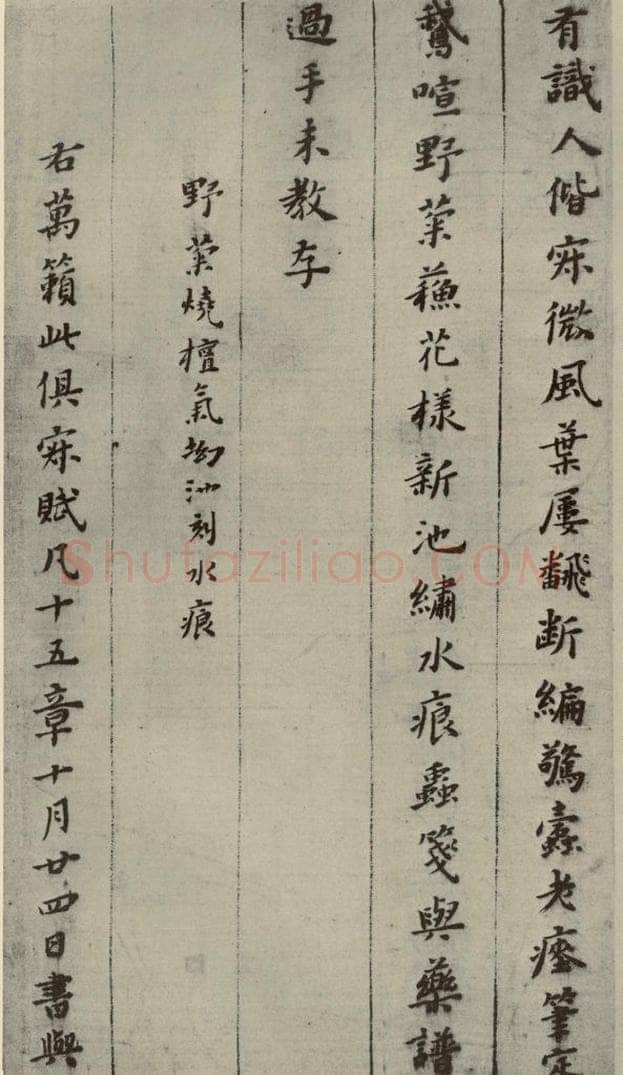 有識人偕寂微風葉屢飜断編驚蠹老瘞筆定
鵝喧野菜蘓花樣新池繡水痕箋與藥譜
過手未教存
野菜燒檀氣坳池刻水痕
右萬籟此俱寂賦凡十五章十月廿四日書與
Shufaziliao.COM